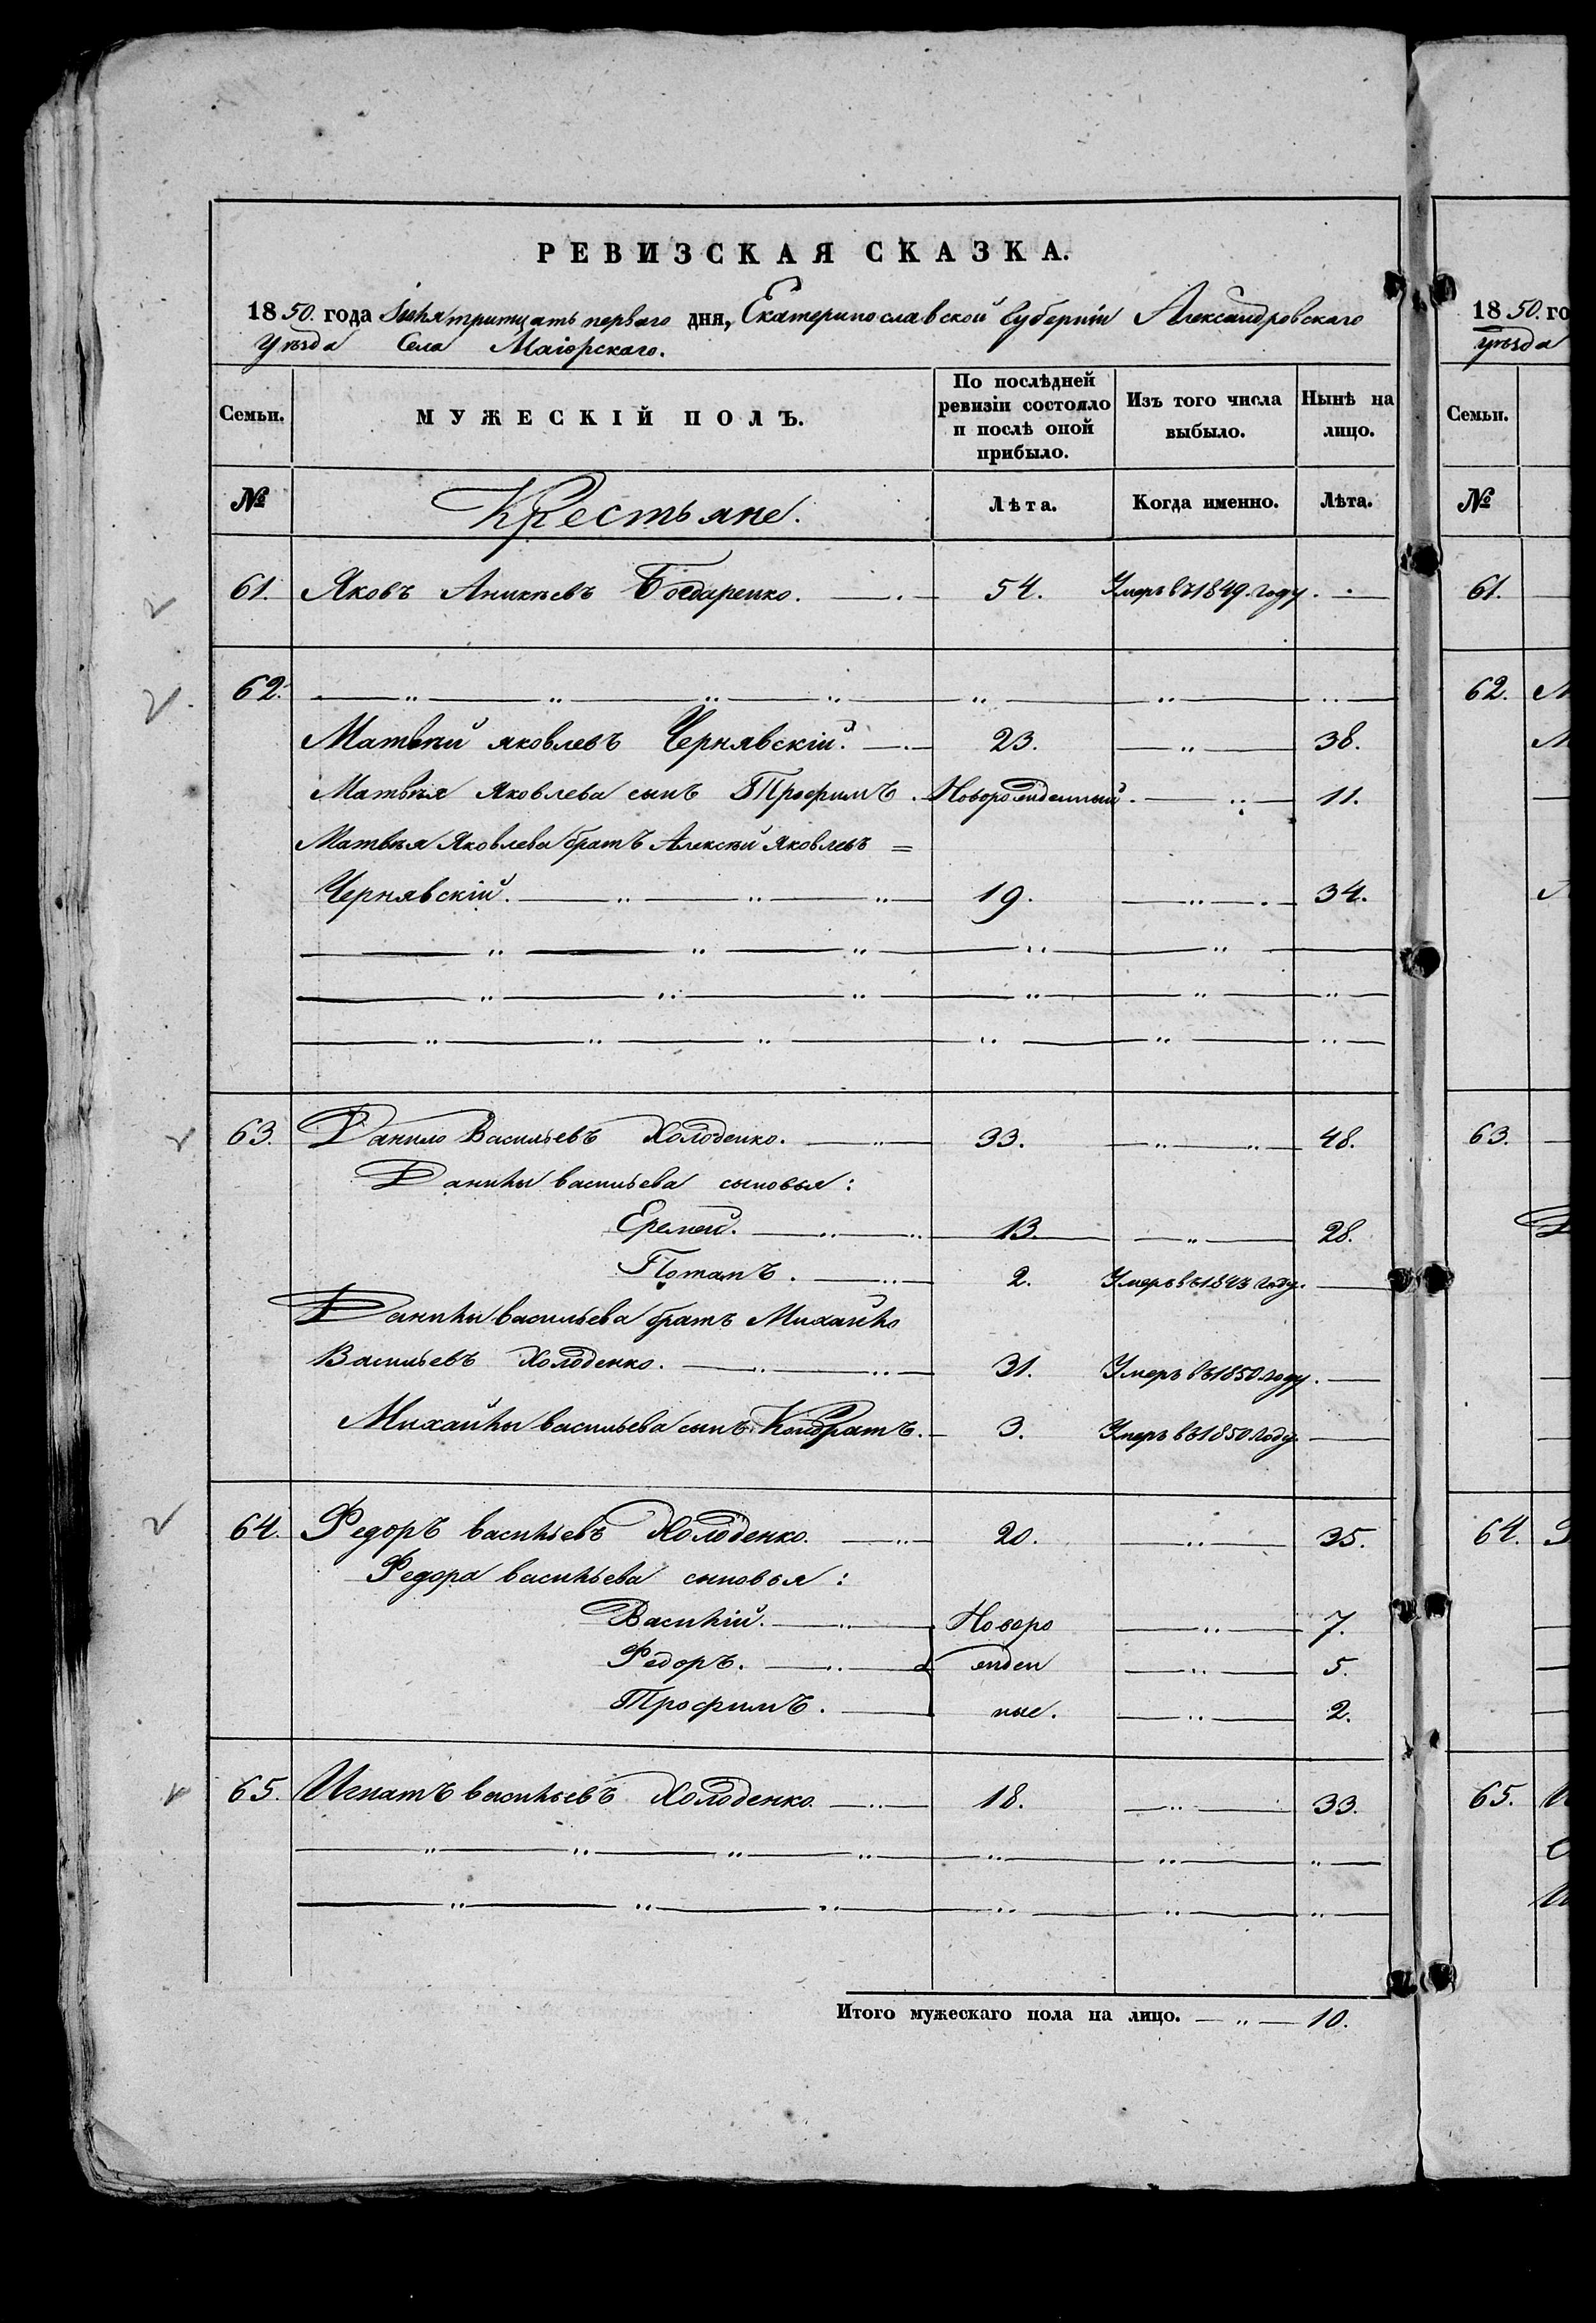 РЕВИЗСКАЯ СКАЗКА.
1850. года Іюля тритцать перваго дня, Екатеринославской Губерніи Александровскаго
уѣзда Села Маіорскаго.
Семьи. МУЖЕСКІЙ ПОЛЪ. По послѣдней ревизіи состояло и послѣ оной прибыло. Изъ того числа выбыло. Нынѣ на лицо.
№ Крестьяне. Лѣта. Когда именно. Лѣта.
61. Яковъ Аникѣевъ Бондаренко. 54. Умеръ въ 1849. году.
62.
Матвѣй Яковлевъ Чернявскій. 23. 38.
Матвѣя Яковлева сынъ Трофимъ. Новорожденный. 11.
Матвѣя Яковлева братъ Алексѣй Яковлевъ =
Чернявскій. 19. 34.
63. Данило Васильевъ Холоденко. 33. 48.
Данилы Васильева сыновья:
Еремей. 13. 28.
Потапъ. 2. Умеръ въ 1843 году.
Данилы Васильева братъ Михайло
Васильевъ Холоденко. 31. Умеръ въ 1850 году.
Михайлы Васильева сынъ Кондратъ. 3. Умеръ въ 1850 году.
64. Федоръ Васильевъ Холоденко. 20. 35.
Федора Васильева сыновья:
Василій. Новоро 7.
Федоръ. жден 5.
Трофимъ. ные. 2.
65. Игнатъ Васильевъ Холоденко. 18. 33.
Итого мужескаго пола на лицо. 10.
1850. го
уѣзда
Семьи.
№
61.
62.
63.
64.
65.